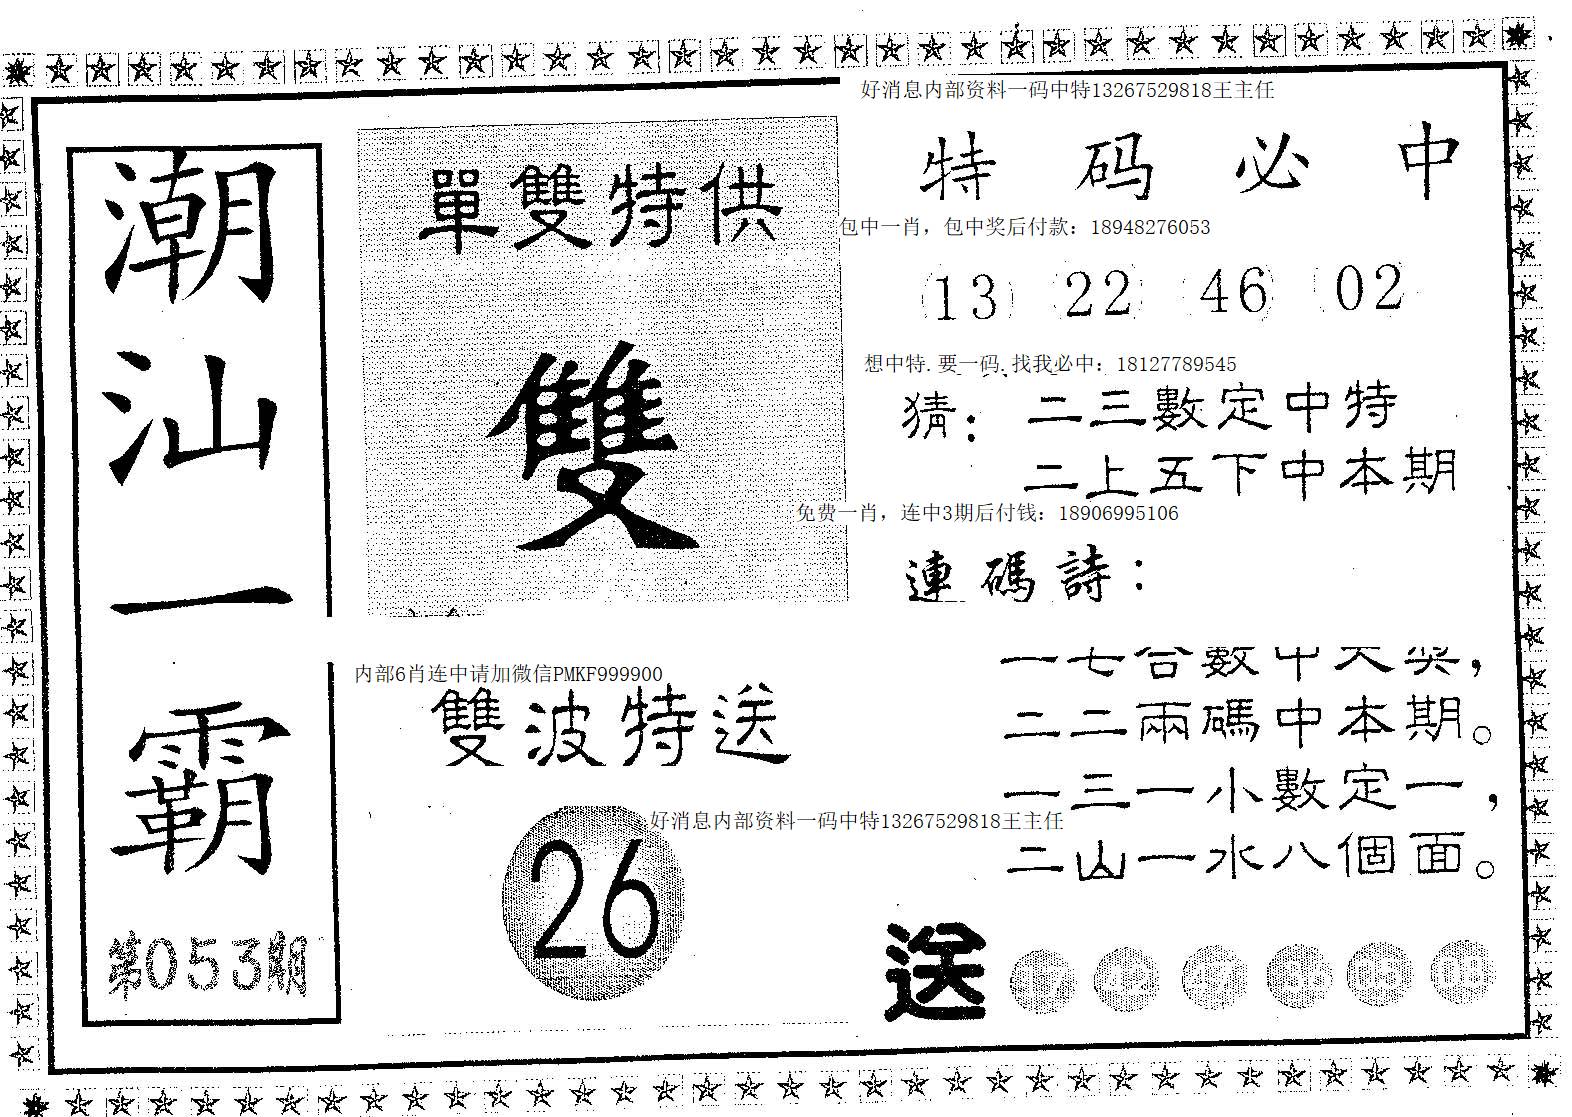 潮汕一霸
第053期
單雙特供
雙
内部6肖连中请加微信PMKF999900
雙波特送
26
好消息内部资料一码中特13267529818王主任
特码必中
包中一肖，包中奖后付款：18948276053
13 22 46 02
想中特.要一码.找我必中：18127789545
猜：二三數定中特
二上五下中本期
免费一肖，连中3期后付钱：18906995106
連碼詩：
一七合數中大奖，
二二兩碼中本期。
一三一小數定一，
二山一水八個面。
好消息内部资料一码中特13267529818王主任
送